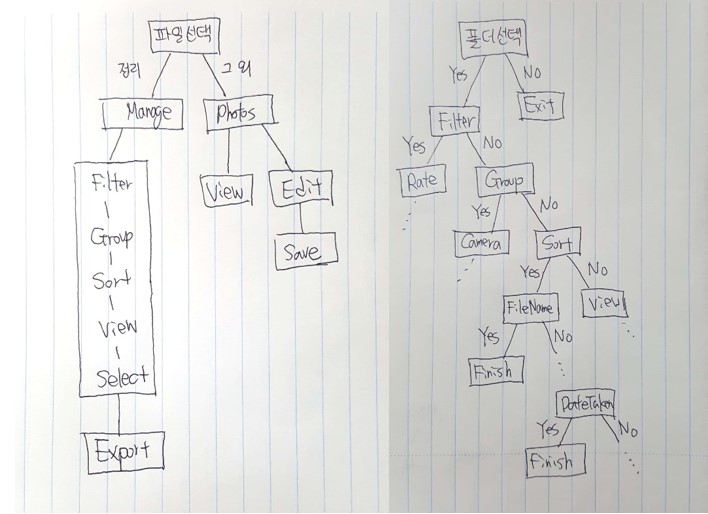 파일선택
정리
그 외
Manage
Photos
Filter
Group
Sort
View
Select
Export
View
Edit
Save
폴더선택
Yes
No
Filter
Exit
Yes
No
Rate
Group
Yes
No
Camera
Sort
Yes
No
FileName
View
Yes
No
Finish
DateTaken
Yes
No
Finish